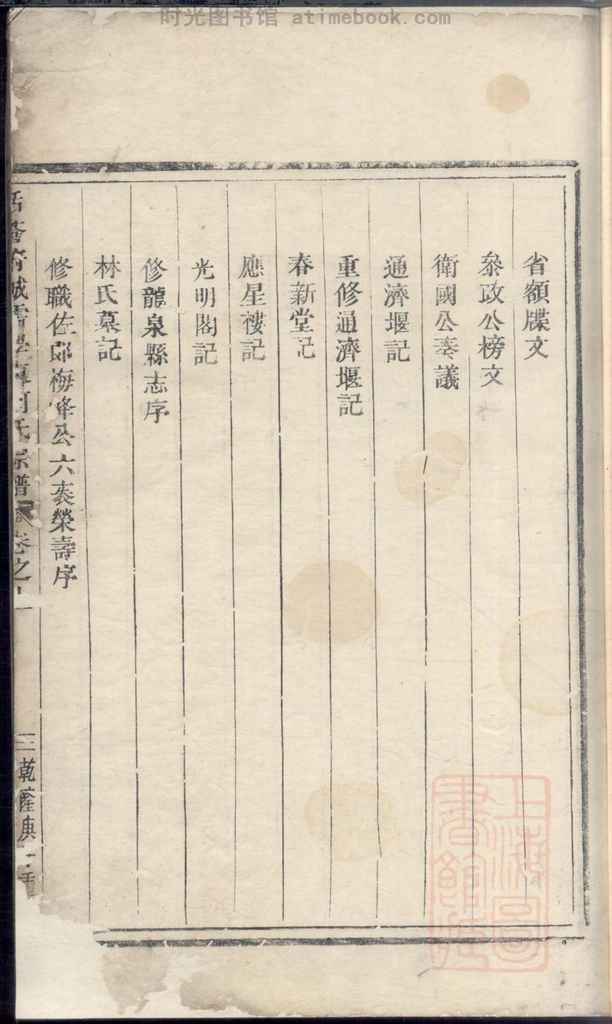 时光图书馆 atimebook.com
省額牒文
叅政公榜文
衛國公奏議
通濟堰記
重修通濟堰記
春新堂記
應星樓記
光明閣記
修龍泉縣志序
林氏墓記
修職佐郎梅峯公六袠榮壽序
氏宗譜 卷之十
三 乾隆庚
上海圖書館藏